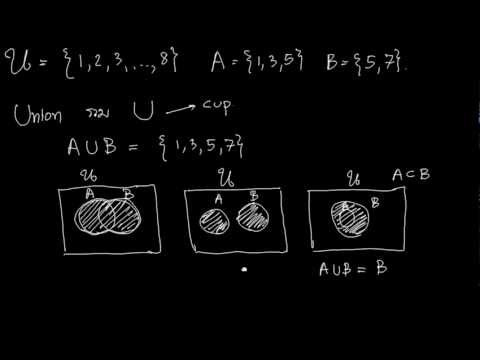 𝒰 = {1,2,3,...,8} A={1,3,5} B={5,7}.
Union รวม ∪ → cup
A∪B = {1,3,5,7}
𝒰 𝒰 𝒰 A⊂B
A B A B A B
A∪B = B